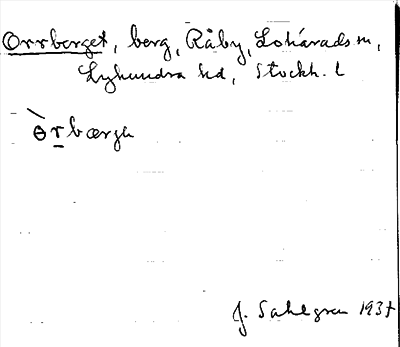 Orrberget, berg, Råby, Lohärads sn,
Lyhundra hd, Stockh. l
J. Sahlgren 1937